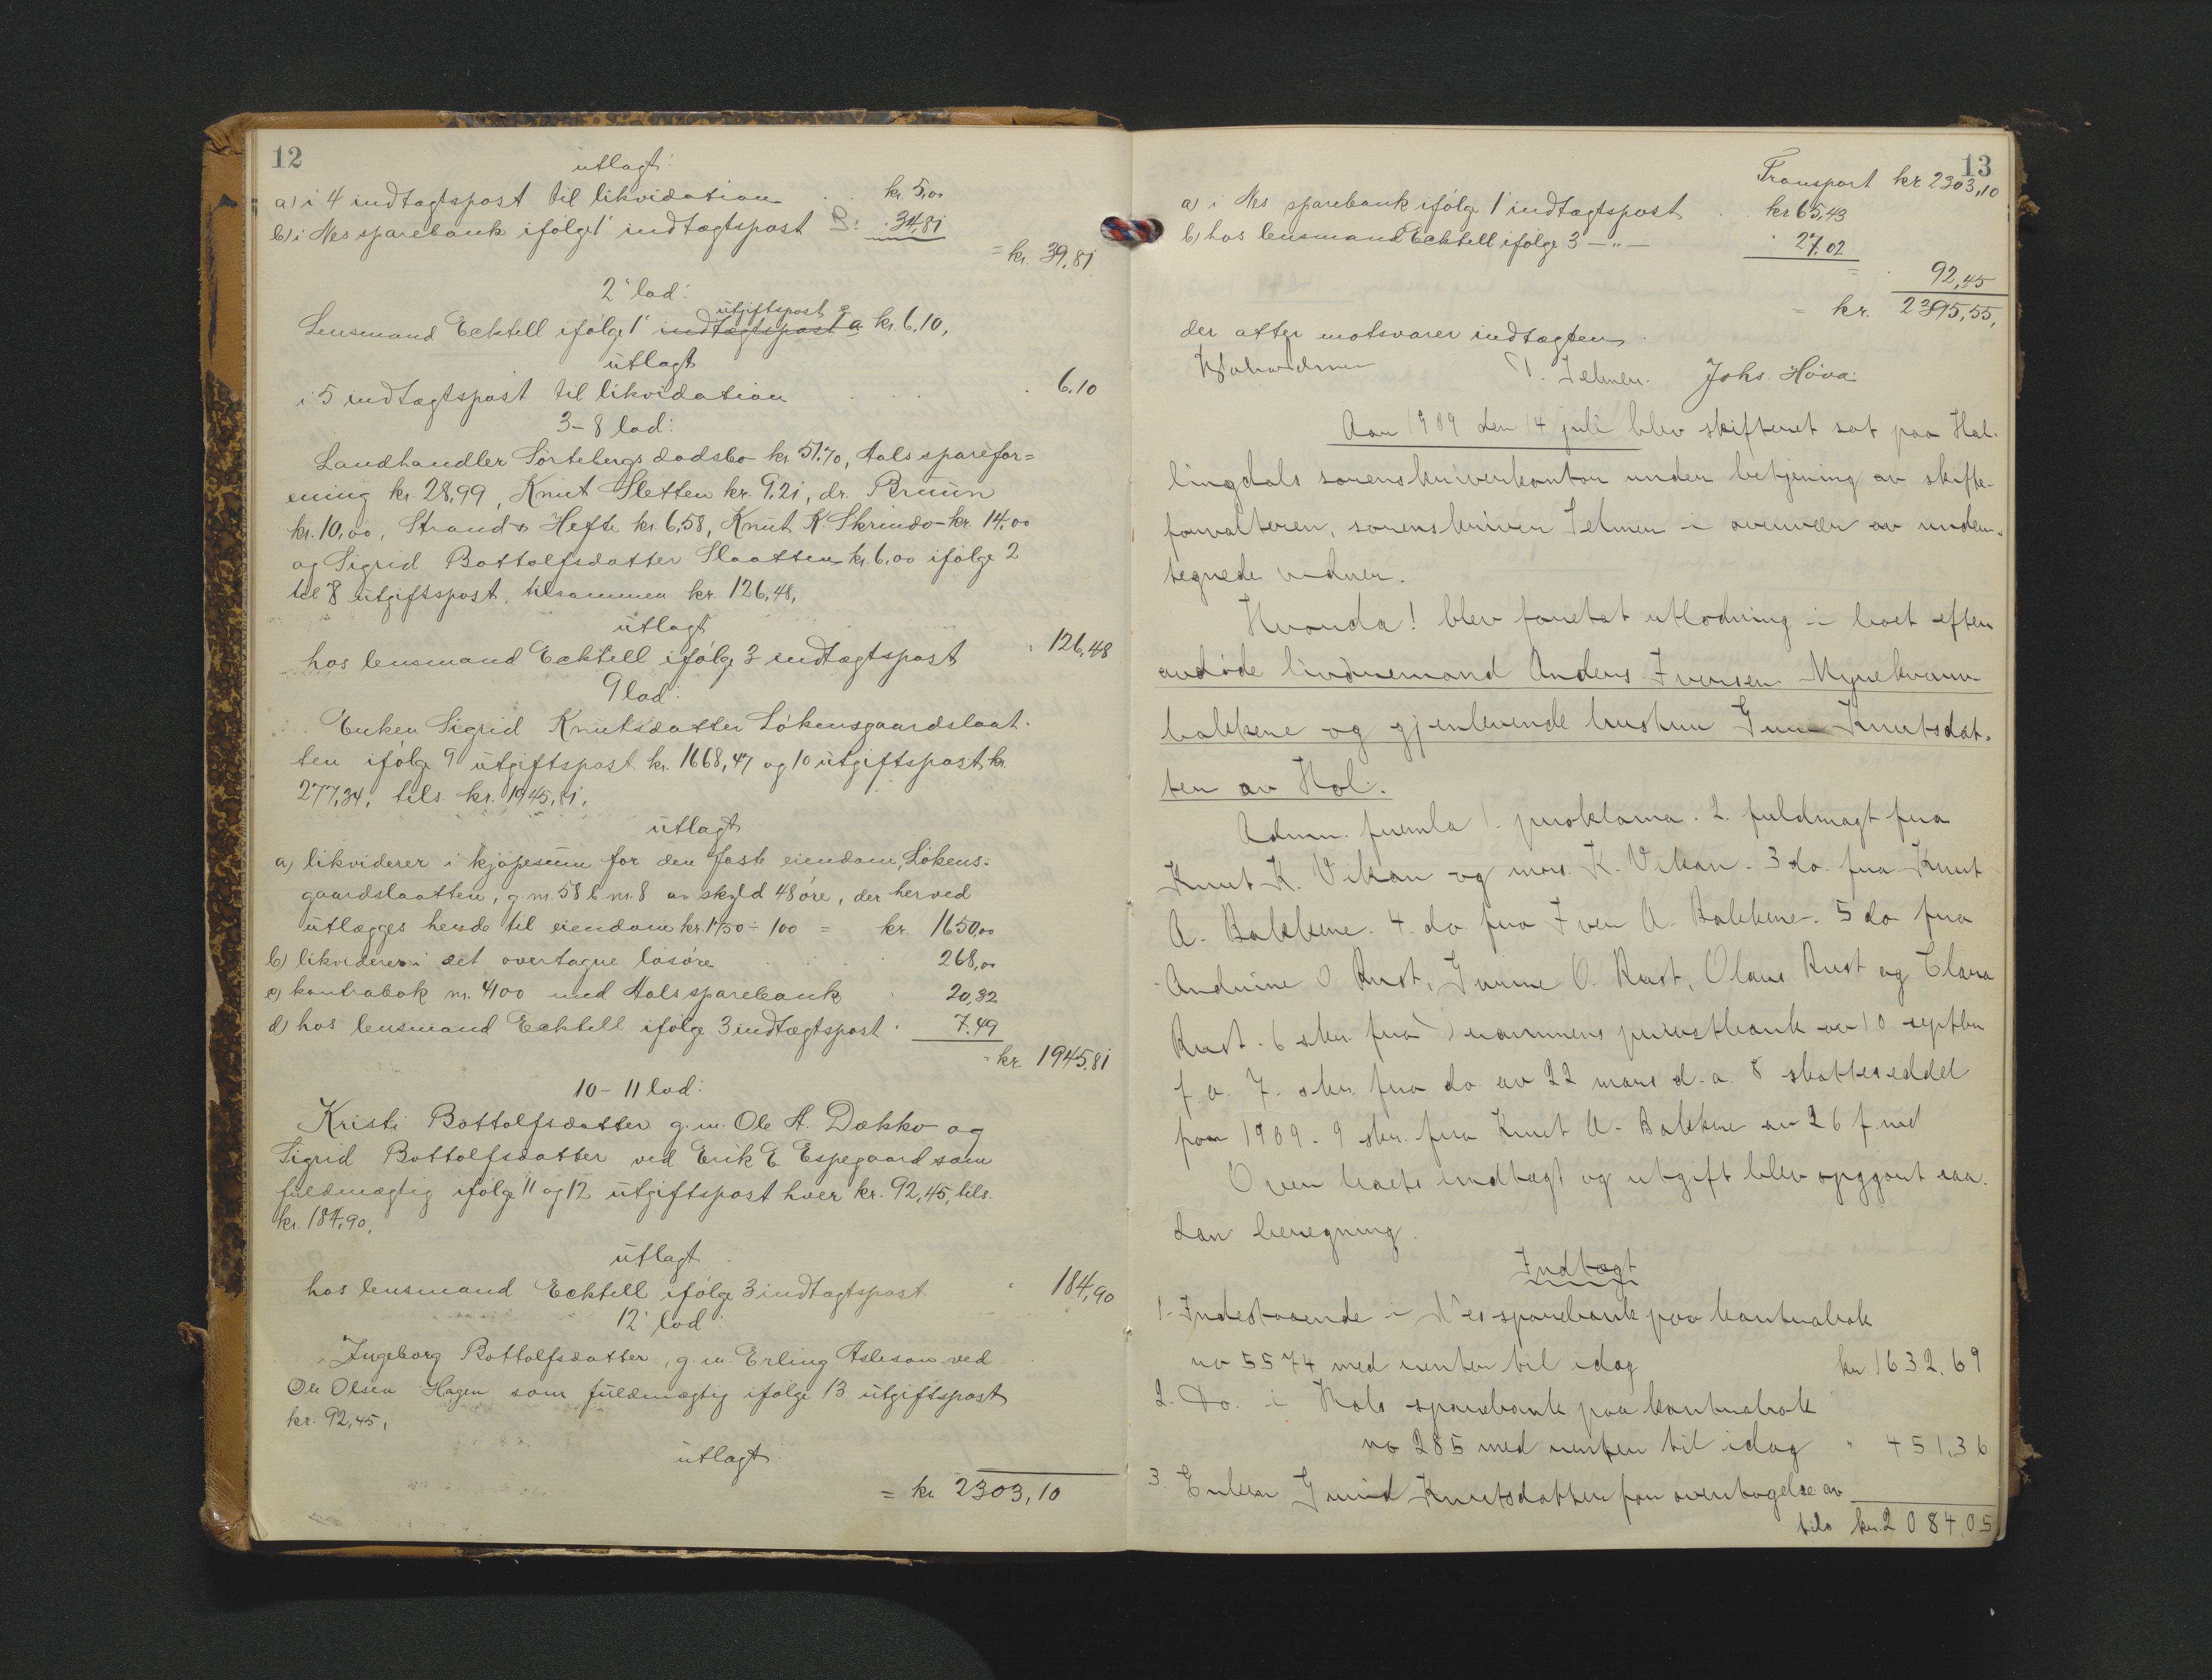 12
utlagt:
a) i 4 indtægtspost til likvidation kr. 5,00
b) i Nes sparebank ifølge 1 indtægtspost 34,81
= kr. 39,81
2' lod:
utgiftspost a
Lensmand Ecktell ifølge 1' indtægtspost a kr. 6,10,
utlagt
i 5 indtægtspost til likvidation 6.10
3-8 lod:
Landhandler Sørtebergs dødsbo kr. 51.70, Aals sparefor=
ening kr. 28,99, Knut Sletten kr. 9.21, dr. Bruun
kr. 10,00, Strand & Hefte kr. 6,58, Knut K. Skrindo kr. 14,00
og Sigrid Bottolfsdatter Slaatten kr. 6,00 ifølge 2
til 8 utgiftspost, tilsammen kr. 126,48,
utlagt
hos lensmand Ecktell ifølge 3 indtægtspost 126,48
9 lod:
Enken Sigrid Knutsdatter Løkensgaardslaat-
ten ifølge 9 utgiftspost kr. 1668,47 og 10 utgiftspost kr.
277,34, tils. kr. 1945,81,
utlagt
a) likviderer i kjøpesum for den faste eiendom, Løkens-
gaardslaatten, g. nr. 58 b. nr. 8 av skyld 48 øre, der herved
utlægges hende til eiendom kr. 1750 ÷ 100 = kr. 1650,00
b) likviderer i det overtagne løsøre 268,00
c) kontrabok nr. 4100 med Aals sparebank 20,32
d) hos lensmand Ecktell ifølge 3 indtægtspost 7.49
= kr 1945.81
10-11 lod:
Kristi Bottolfsdatter g. m. Ole A. Dokko og
Sigrid Bottolfsdatter ved Erik E Espegaard som
fuldmægtig ifølge 11 og 12 utgiftspost hver kr. 92,45, tils.
kr. 184,90,
utlagt
hos lensmand Ecktell ifølge 3 indtægtspost 184,90
12' lod:
Ingeborg Bottolfsdatter, g. m. Erling Asleson ved
Ole Olsen Hagen som fuldmægtig ifølge 13 utgiftspost
kr. 92,45,
utlagt
= kr 2303,10
13
Transport kr 2303,10
a) i Nes sparebank ifølge 1' indtægtspost kr 65,43
b) hos lensmand Ecktell ifølge 3 —"— 27.02
= 92,45
= kr. 2395,55,
der atter motsvarer indtægten.
Johs. Hove
Aar 1909 den 14 juli blev skifteret sat paa Hal-
lingdals sorenskriverkontor under betjening av skifte-
forvalteren, sorenskriver Selmer i overvær av under-
tegnede vidner.
Hvorda! blev foretat utlodning i boet efter
avdøde livøremand Anders Iversen Myrekvam
bakkene og gjenlevende hustru Guri Knutsdat-
ter av Hol.
Admn. fremla 1. proklama. 2. fuldmagt fra
Knut K. Vikan og K. Vikan. 3 do. fra Knut
A. Bakkene. 4. do. fra Iver A. Bakkene. 5 do fra
Andrine O Rust, O. Rust, Olaus Rust og Clara
Rust. 6 skr. fra Drammens privatbank av 10 septbr
f. a. 7. skr. fra do. av 22 mars d. a. 8 skatteseddel
for 1909. 9 skr. fra Knut A. Bakkene av 26 f. md
Over boets indtægt og utgift blev opgjort saa-
dan beregning.
Indtægt
1. Indestaaende i Nes sparebank paa kontrabok
no 5574 med renter til idag kr 1632.69
2. Do. i Hols sparebank paa kontrabok
no 285 med renter til idag " 451,36
3. Enken Knutsdatter for overtagelse av
tils kr. 2084,05